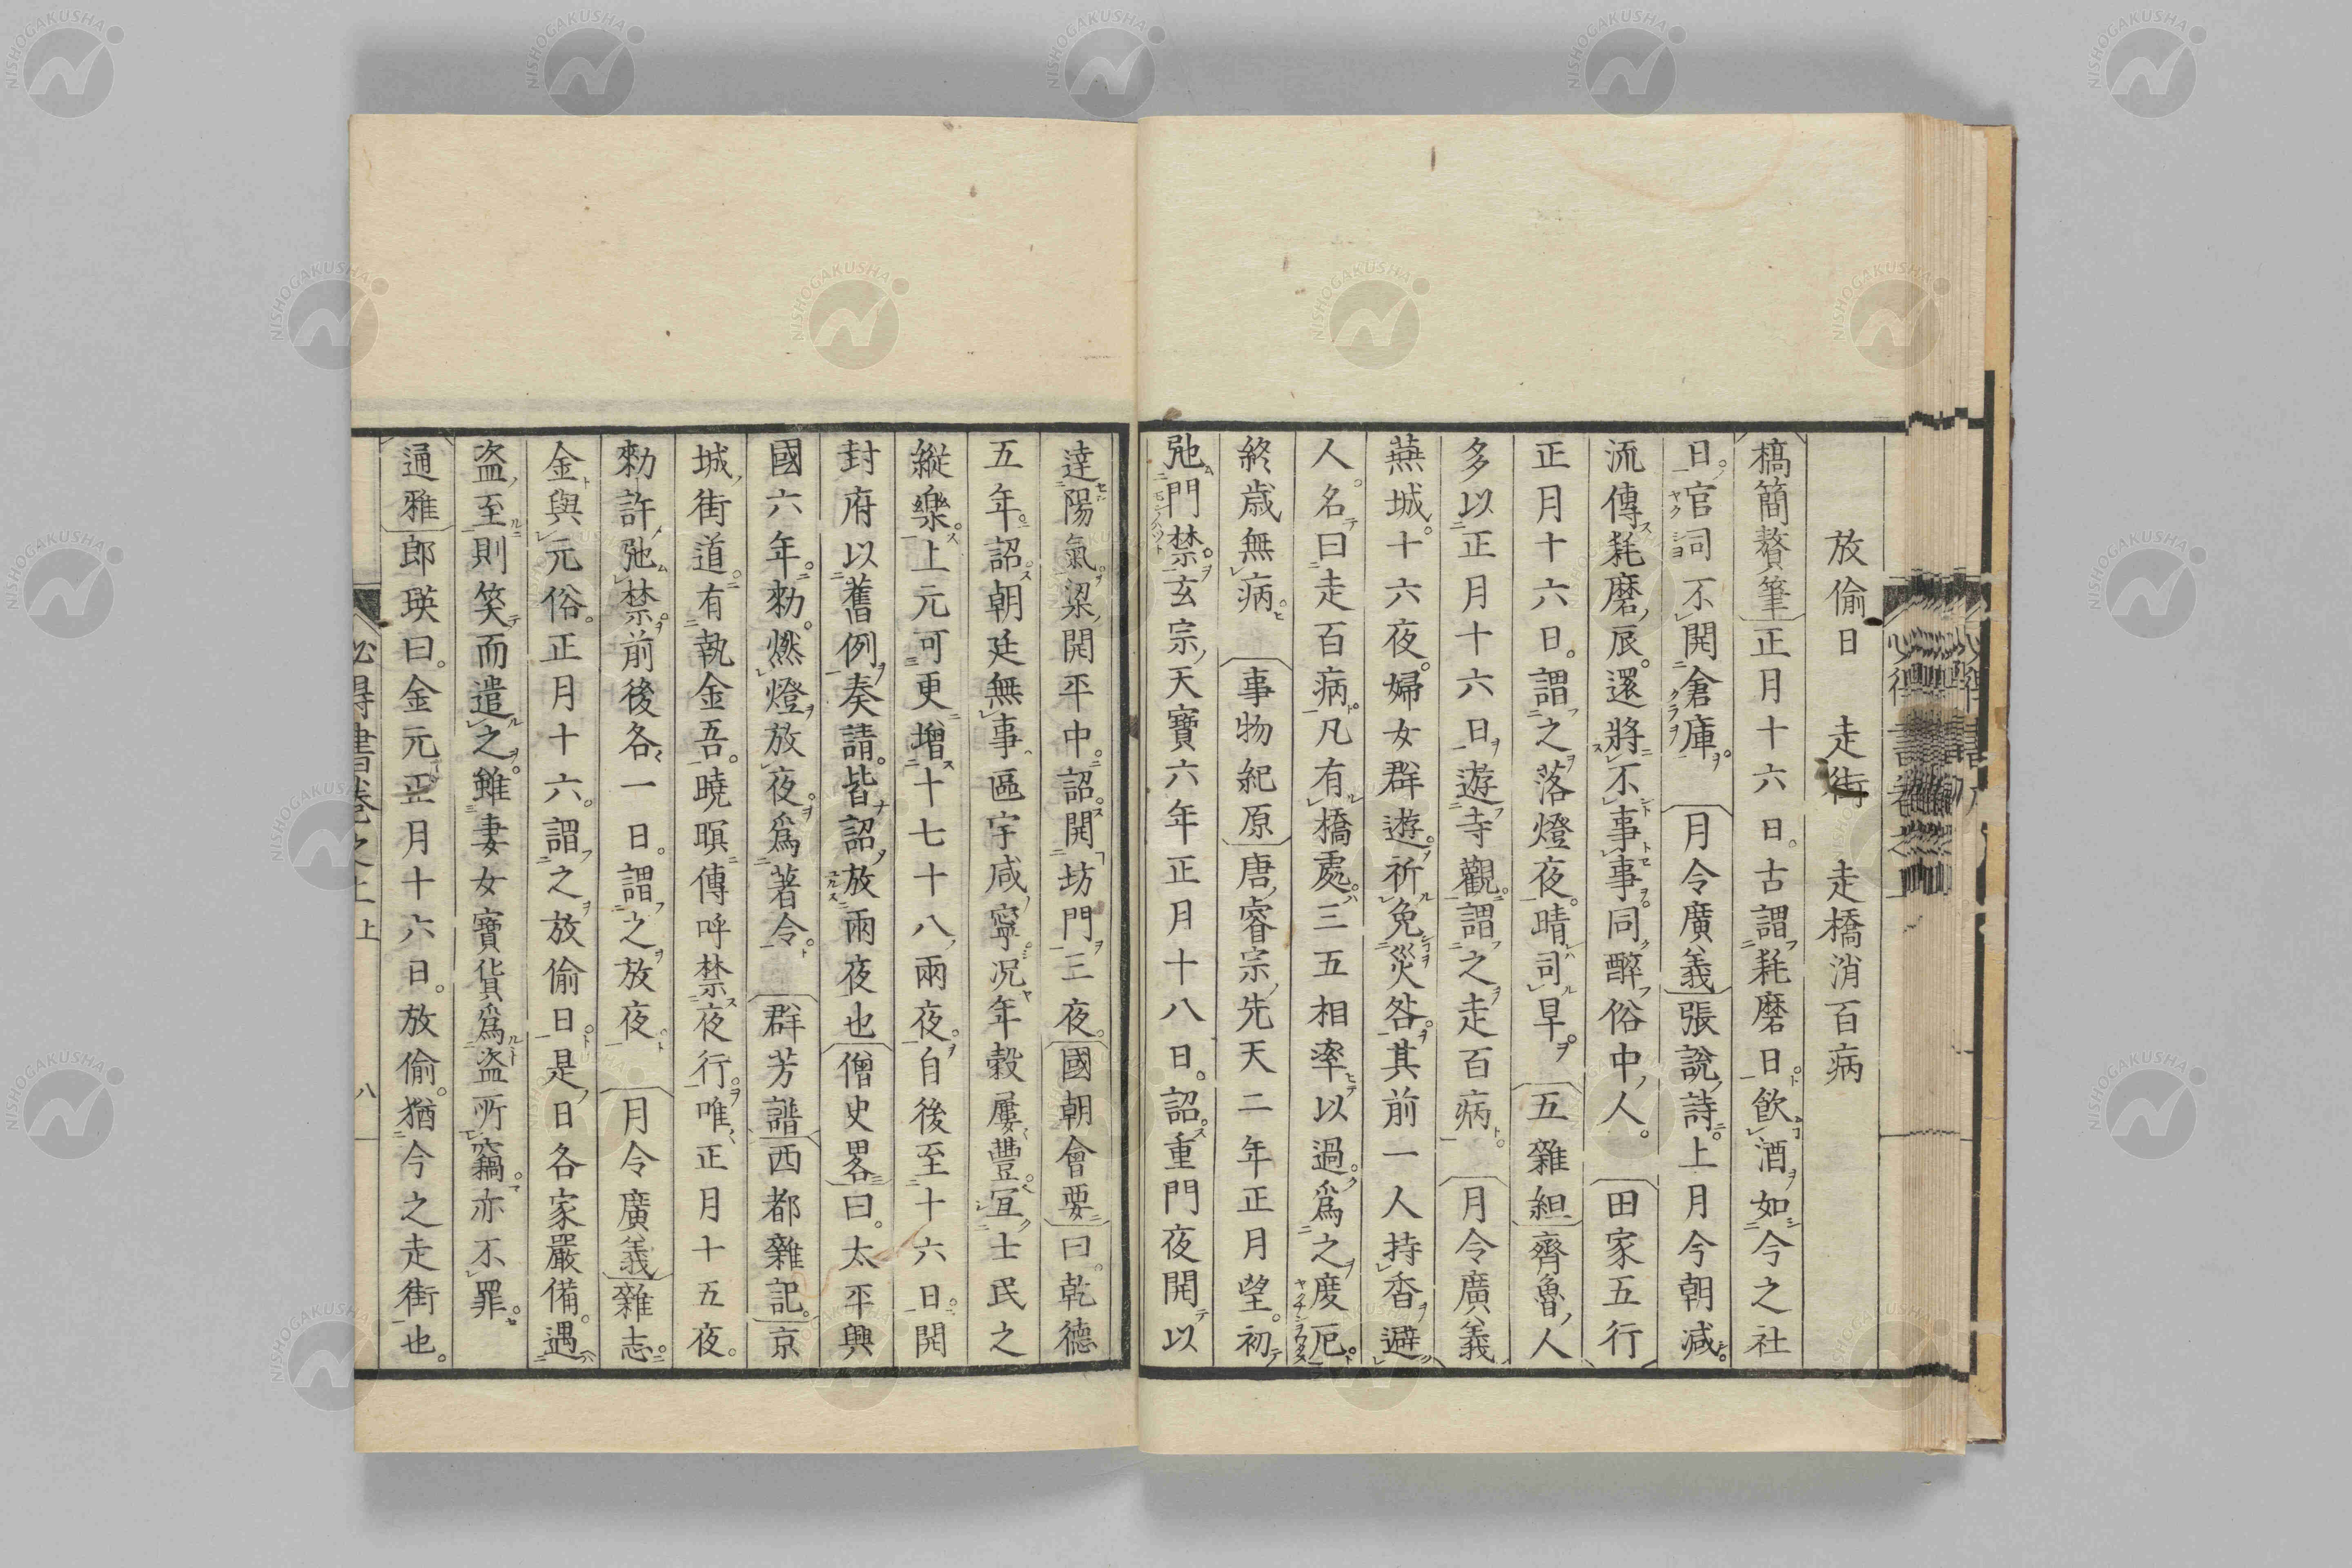 放偷日　走街　走橋消百病
槁簡贅筆正月十六日。古謂之耗磨日。飲酒如今之社
日。官司不開倉庫。月令廣義張說詩。上月今朝減。
流傳耗磨辰。還將不事事。同醉俗中人。田家五行
正月十六日。謂之落燈夜。晴司旱。五雜組齊魯人
多以正月十六日遊寺觀。謂之走百病。月令廣義
燕城。十六夜。婦女群遊。祈免災咎。其前一人持香避
人。名曰走百病。凡有橋處。三五相率以過。爲之度厄。
終歲無病。事物紀原唐睿宗先天二年正月望。初
弛門禁。玄宗天寶六年正月十八日。詔重門夜開以
達陽氣。梁開平中。詔開坊門三夜。國朝會要曰。乾德
五年。詔朝廷無事區宇咸寧。况年穀屢豐。宜士民之
縱樂。上元可更增十七十八兩夜。自後至十六日。開
封府以舊例奏請。皆詔放兩夜也僧史畧曰。太平興
國六年。勑。燃燈放夜。爲著令。群芳譜西都雜記。京
城街道。有執金吾。曉暝傳呼禁夜行。唯正月十五夜。
勑許弛禁。前後各一日。謂之放夜。月令廣義雜志。
金與元俗。正月十六。謂之放偷日。是日各家嚴備。遇
盜至則笑而遣之。雖妻女寶貨爲盜所竊。亦不罪。
通雅郎瑛曰。金元正月十六日。放偷。猶今之走街也。
必得書卷之上　上　八